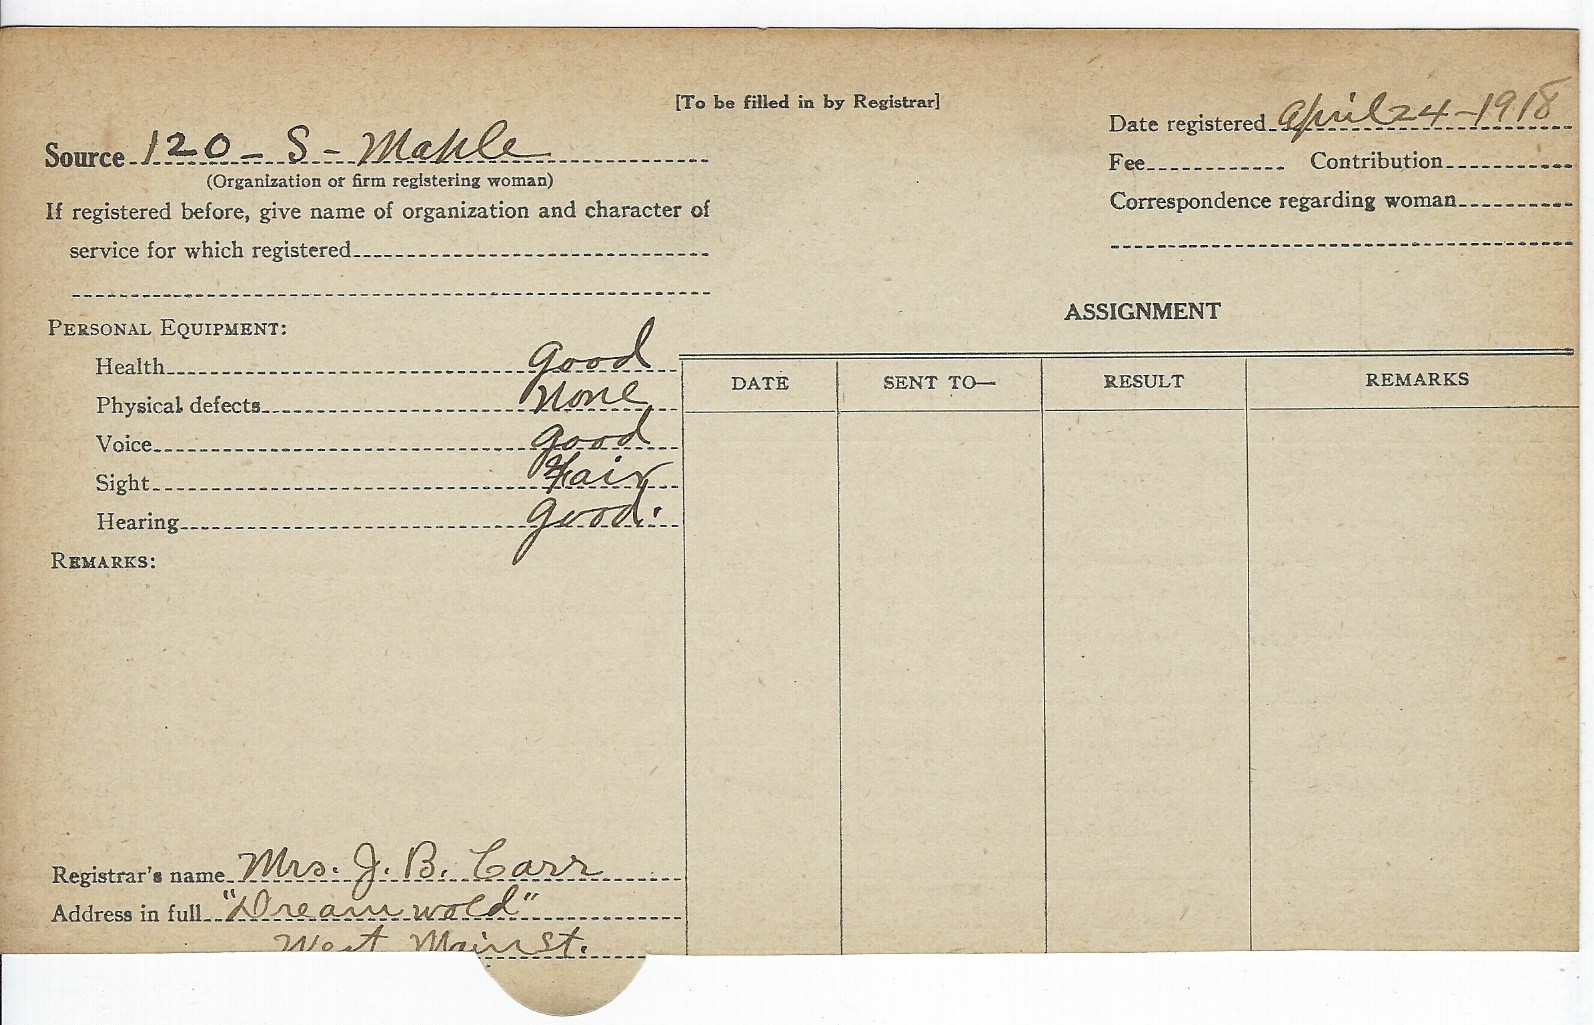 [To be filled in by Registrar]
Source 120 - S - Maple
(Organization or firm registering woman)
If registered before, give name of organization and character of
service for which registered
Date registered April 24 - 1918
Fee Contribution
Correspondence regarding woman
PERSONAL EQUIPMENT:
Health good
Physical defects none
Voice good
Sight Fair
Hearing good.
REMARKS:
ASSIGNMENT
DATE SENT TO— RESULT REMARKS
Registrar's name Mrs. J. B. Carr
Address in full "Dreamwold"
West Main St.